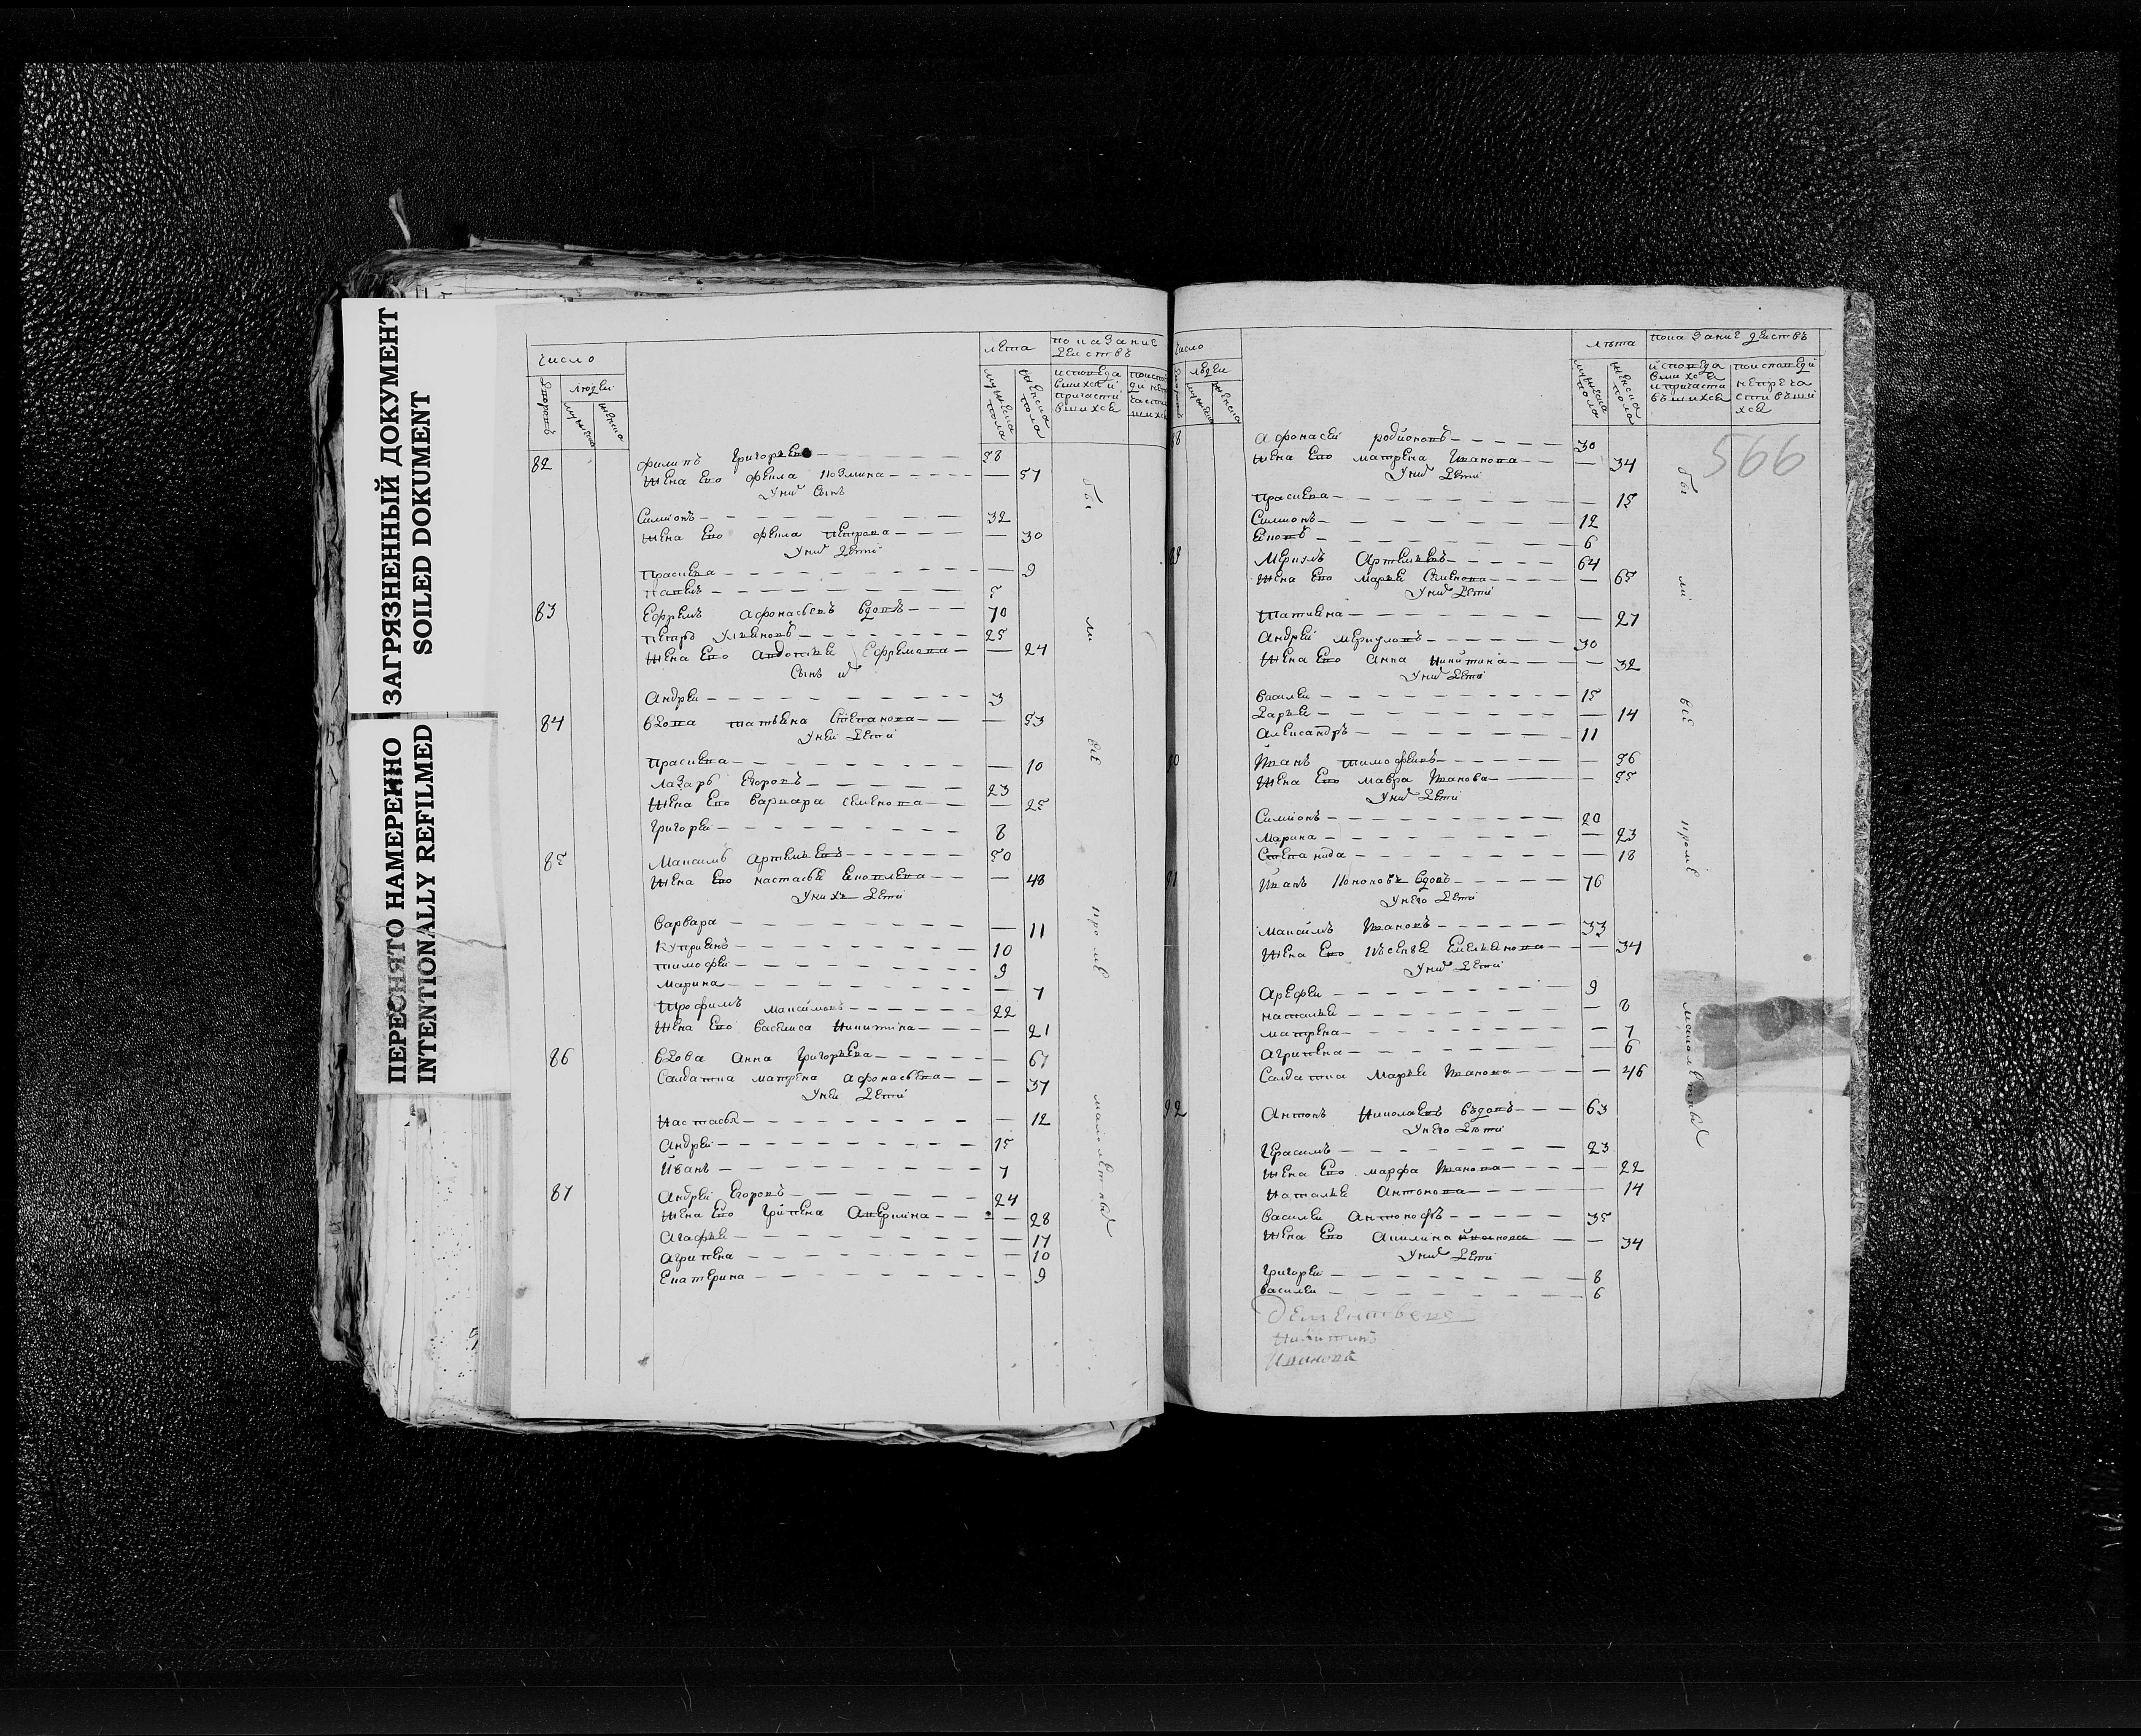 ЗАГРЯЗНЕННЫЙ ДОКУМЕНТ
SOILED DOKUMENT
ПЕРЕСНЯТО НАМЕРЕННО
INTENTIONALLY REFILMED
число
лета
показание действъ
дворовъ
людей
мужеска
женска
мужеска пола
женска пола
исповеда
вшихся и
причасти
вшихся
82 Филипъ Григорьевъ 58
жена Его Фекла Козмина 57
У них Сынъ
Симионъ 32
жена Его Фекла Петрова 30
У них Дети
Прасковa 9
Павелъ 5
83 Ефремъ Афонасьевъ вдовъ 70
Петръ Ульяновъ 25
жена Его Авдотья Ефремова 24
Сынъ их
Андреи 3
84 вдова татьяна Степанова 53
У неи Дети
Прасковa 10
Лазарь Егоровъ 23
жена Его Варвара семенова 25
Григореи 8
85 Максимъ Артемьевъ 50
жена Его настасья 48
У нихъ Дети
Варвара 11
Куприянъ 10
тимофеи 9
Марина 7
Трофимъ Максимовъ 22
жена Его Василиса Никитина 21
86 вдова Анна Григорьева 67
Салдатка матрена Афонасьева 37
У неи Дети
Настасья 12
Андреи 15
Иванъ 7
87 Андреи Егоровъ 24
жена Его Грипена Аверкина 28
Агафья 17
Агрипена 10
Екатерина 9
бы
ли
все
кроме
малолетных
число
лѣта
показание действъ
людеи
мужеска
женска
мужеска пола
женска пола
исповеда
вшихся
и причасти
вшихся
по исповеди
непреча
стивши
хся
566
8 Афонасеи родионовъ 30
жена Его матрена Иванова 34
У них Дети
Прасковa 15
Симионъ 12
6
89 Меркулъ Артемьевъ 64
жена Его марья Семенова 65
У них Дети
Татияна 27
Андреи меркуловъ 30
жена Его Анна Никитина 32
У них Дети
Василеи 15
Дарья 14
Александръ 11
0 Иванъ тимофеевъ 56
жена Его мавра Иванова 55
У них Дети
Симионъ 20
Марина 23
Степанида 18
91 Иванъ вдовъ 76
У него Дети
Максимъ Ивановъ 33
жена Его Емельянова 34
У них Дети
Арефеи 9
наталья 8
матрена 7
Агрипена 6
Салдатка Марья Иванова 46
92 Антонъ Николаевъ вдовъ 63
У него Дѣти
Герасимъ 23
жена Его марфа Иванова 22
Наталья Антонова 14
Василеи Антоновъ 35
жена Его Акилина 34
У них Дети
Григореи 8
Василеи 6
Никитинъ
бы
ли
все
кроме
малолетных